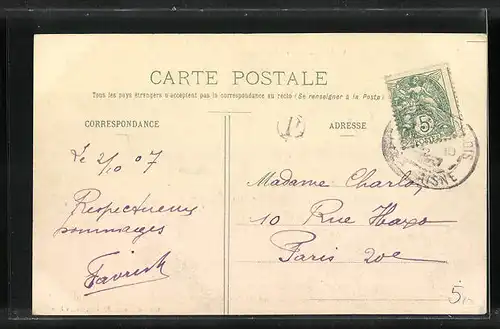 CARTE POSTALE
Tous les pays étrangers n'acceptent pas la correspondance au recto (Se renseigner à la Poste)
CORRESPONDANCE
ADRESSE
5
AISNE
Le 2/10 07
Respectueux
hommages
Madame Charlon
10 Rue Haxo
Paris 20e
5